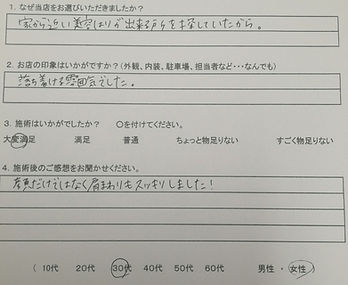 1. なぜ当店をお選びいただきましたか？
家から近い美容はりが出来る所を探していたから。
2. お店の印象はいかがですか？（外観、内装、駐車場、担当者など…なんでも）
落ち着ける雰囲気でした。
3. 施術はいかがでしたか？　○を付けてください。
大変満足　満足　普通　ちょっと物足りない　すごく物足りない
4. 施術後のご感想をお聞かせください。
顔だけではなく肩まわりもスッキリしました！
（ 10代　20代　30代　40代　50代　60代　男性 ・ 女性 ）